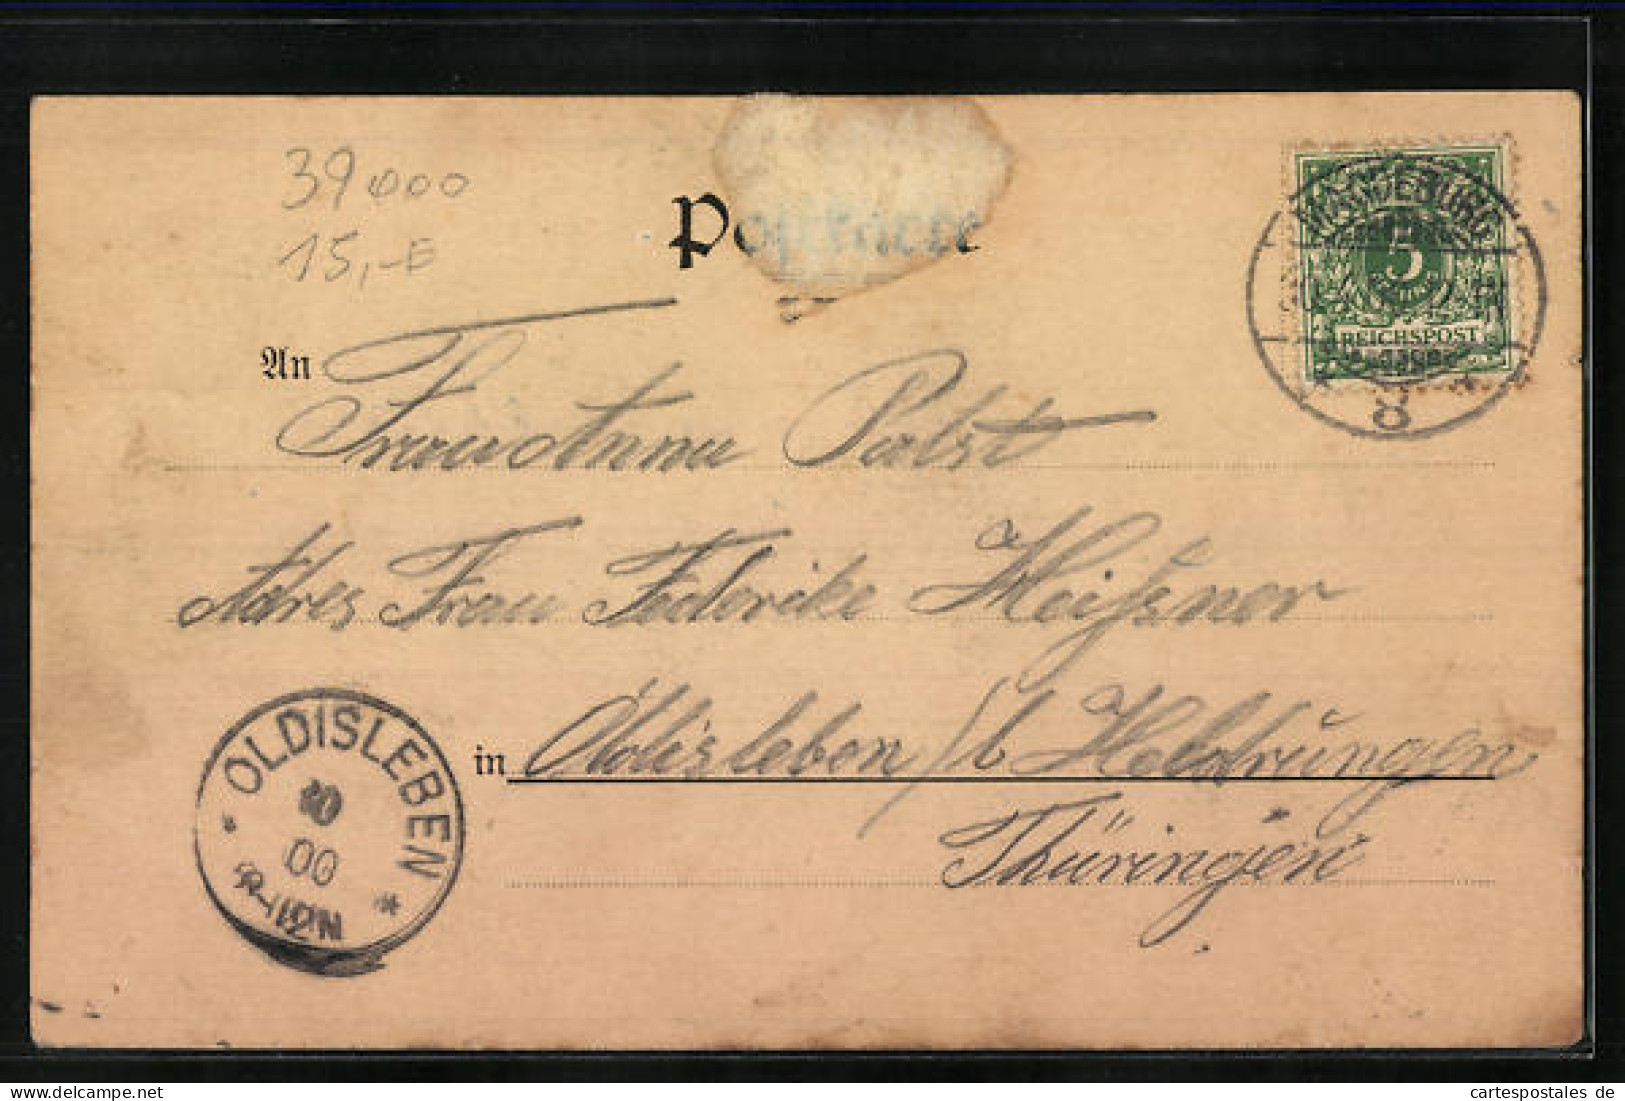 39000
15,-E
Postkarte
MAGDEBURG
5
REICHSPOST
8
An
Frau Anna Pabst
Adres Frau Federike Meißner
in Oldisleben / b Heldrungen
Thüringen
OLDISLEBEN
00
cartespostales de